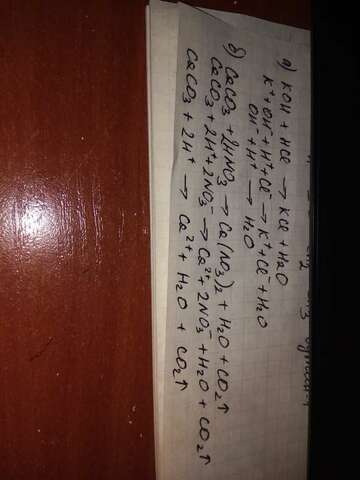 а) KOH + HCl → KCl + H₂O
K⁺ + OH⁻ + H⁺ + Cl⁻ → K⁺ + Cl⁻ + H₂O
OH⁻ + H⁺ → H₂O
б) CaCO₃ + 2HNO₃ → Ca(NO₃)₂ + H₂O + CO₂↑
CaCO₃ + 2H⁺ + 2NO₃⁻ → Ca²⁺ + 2NO₃⁻ + H₂O + CO₂↑
CaCO₃ + 2H⁺ → Ca²⁺ + H₂O + CO₂↑